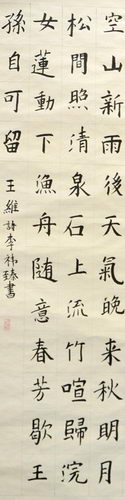 空山新雨後天氣晚来秋明月
松間照清泉石上流竹喧歸浣
女蓮動下漁舟随意春芳歇王
孫自可留
王維詩李祎臻書